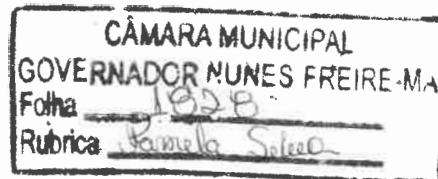 CÂMARA MUNICIPAL
GOVERNADOR NUNES FREIRE-MA
Folha 1828
Rubrica Pamela